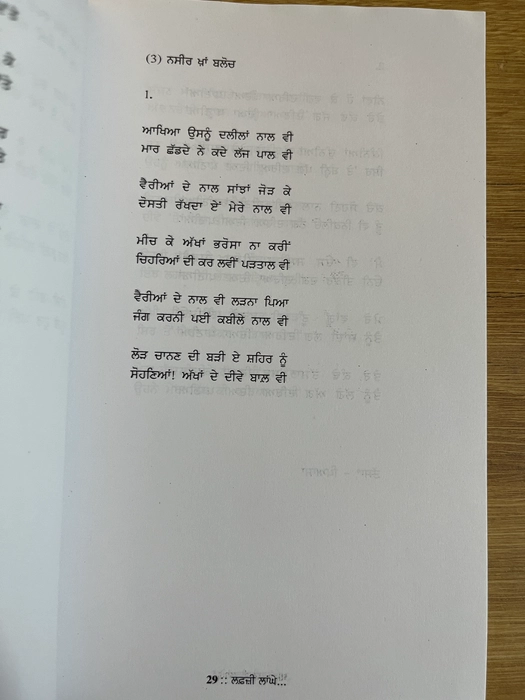 (3) ਨਸੀਰ ਖ਼ਾਂ ਬਲੋਚ
1.
ਆਖਿਆ ਉਸਨੂੰ ਦਲੀਲਾਂ ਨਾਲ ਵੀ
ਮਾਰ ਛੱਡਦੇ ਨੇ ਕਦੇ ਲੱਜ ਪਾਲ ਵੀ
ਵੈਰੀਆਂ ਦੇ ਨਾਲ ਸਾਂਝਾਂ ਜੋੜ ਕੇ
ਦੋਸਤੀ ਰੱਖਦਾ ਏਂ ਮੇਰੇ ਨਾਲ ਵੀ
ਮੀਚ ਕੇ ਅੱਖਾਂ ਭਰੋਸਾ ਨਾ ਕਰੀਂ
ਚਿਹਰਿਆਂ ਦੀ ਕਰ ਲਵੀਂ ਪੜਤਾਲ ਵੀ
ਵੈਰੀਆਂ ਦੇ ਨਾਲ ਵੀ ਲੜਨਾ ਪਿਆ
ਜੰਗ ਕਰਨੀ ਪਈ ਕਬੀਲੇ ਨਾਲ ਵੀ
ਲੋੜ ਚਾਨਣ ਦੀ ਬੜੀ ਏ ਸ਼ਹਿਰ ਨੂੰ
ਸੋਹਣਿਆਂ! ਅੱਖਾਂ ਦੇ ਦੀਵੇ ਬਾਲ਼ ਵੀ
29 :: ਲਫ਼ਜ਼ੀ ਲਾਂਘੇ...